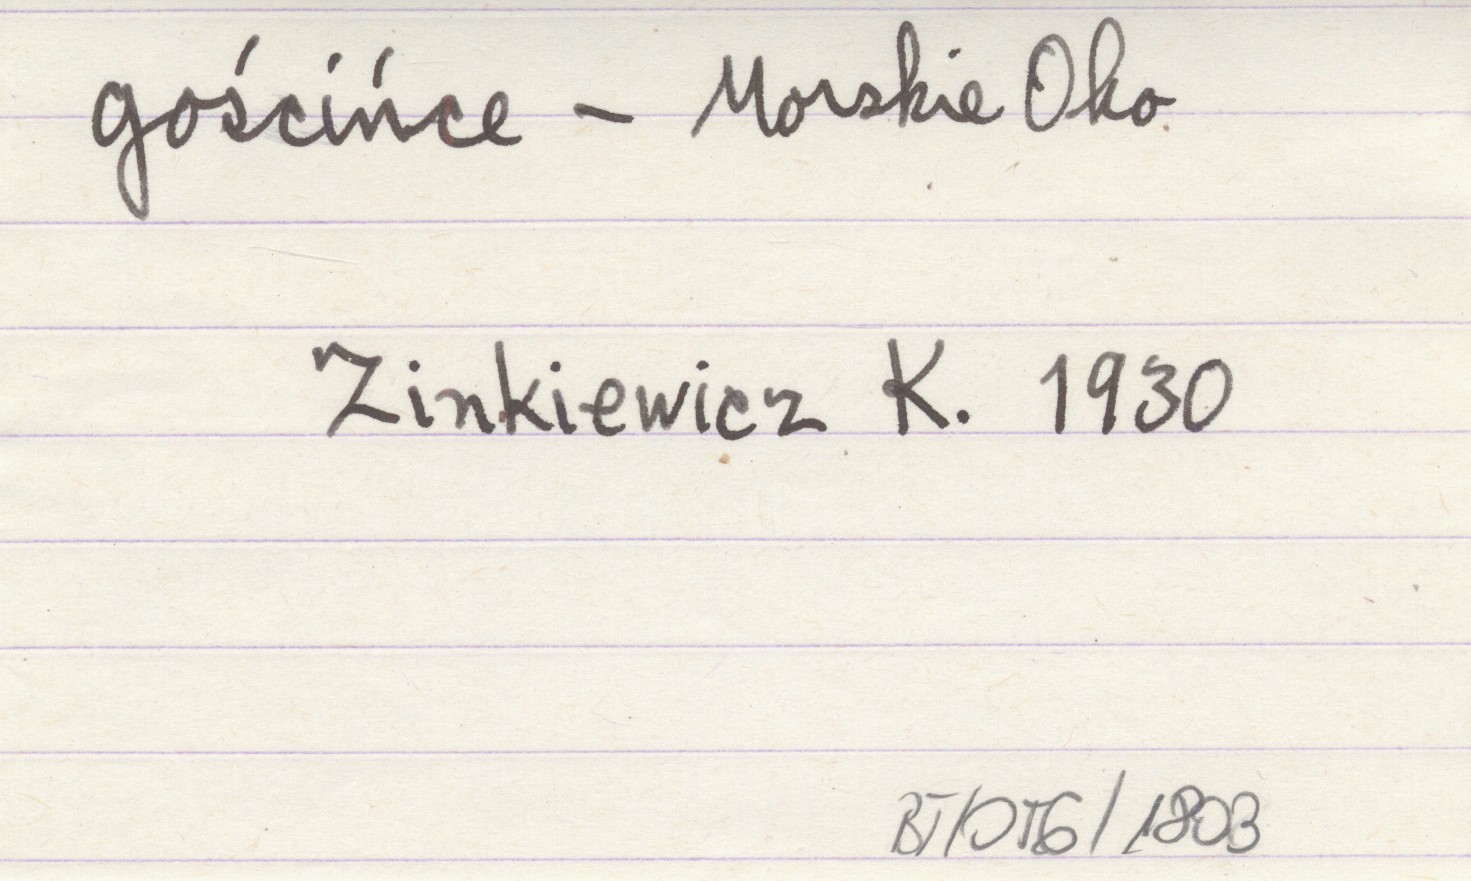 gościńce - Morskie Oko
Zinkiewicz K. 1930
BT/OTG/1803